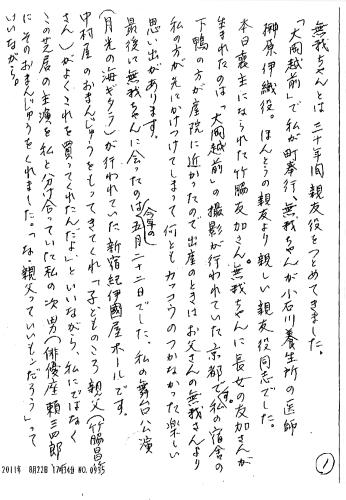 ①
無我ちゃんとは三十年間親友役をつとめてきました。
「大岡越前」で私が町奉行、無我ちゃんが小石川養生所の医師
榊原伊織役。ほんとうの親友より親しい親友役同志でした。
本日喪主になられた竹脇友加さん。無我ちゃんに長女の友加さんが
生まれたのは「大岡越前」の撮影が行われていた京都です。私の宿舎の
下鴨の方が産院に近かったので出産のときはお父さんの無我さんより
私の方が先にかけつけてしまって何ともカッコウのつかなかった楽しい
思い出があります。
最後に無我ちゃんに会ったのは今年の五月二十二日でした、私の舞台公演
(月光の海ギタラ)が行われていた新宿紀伊國屋ホールです。
中村屋のおまんじゅうをもってきてくれ「子どものころ親父(竹脇昌作
さん)がよくこれを買ってくれたんだよ」といいながら、私にではなく
この芝居の主演を私と分け合っていた私の次男(俳優座頼三四郎)
にそのおまんじゅうをくれました。「な、親父っていいもンだろう」って
いいながら。
2011年 8月22日 17時34分 NO.0935